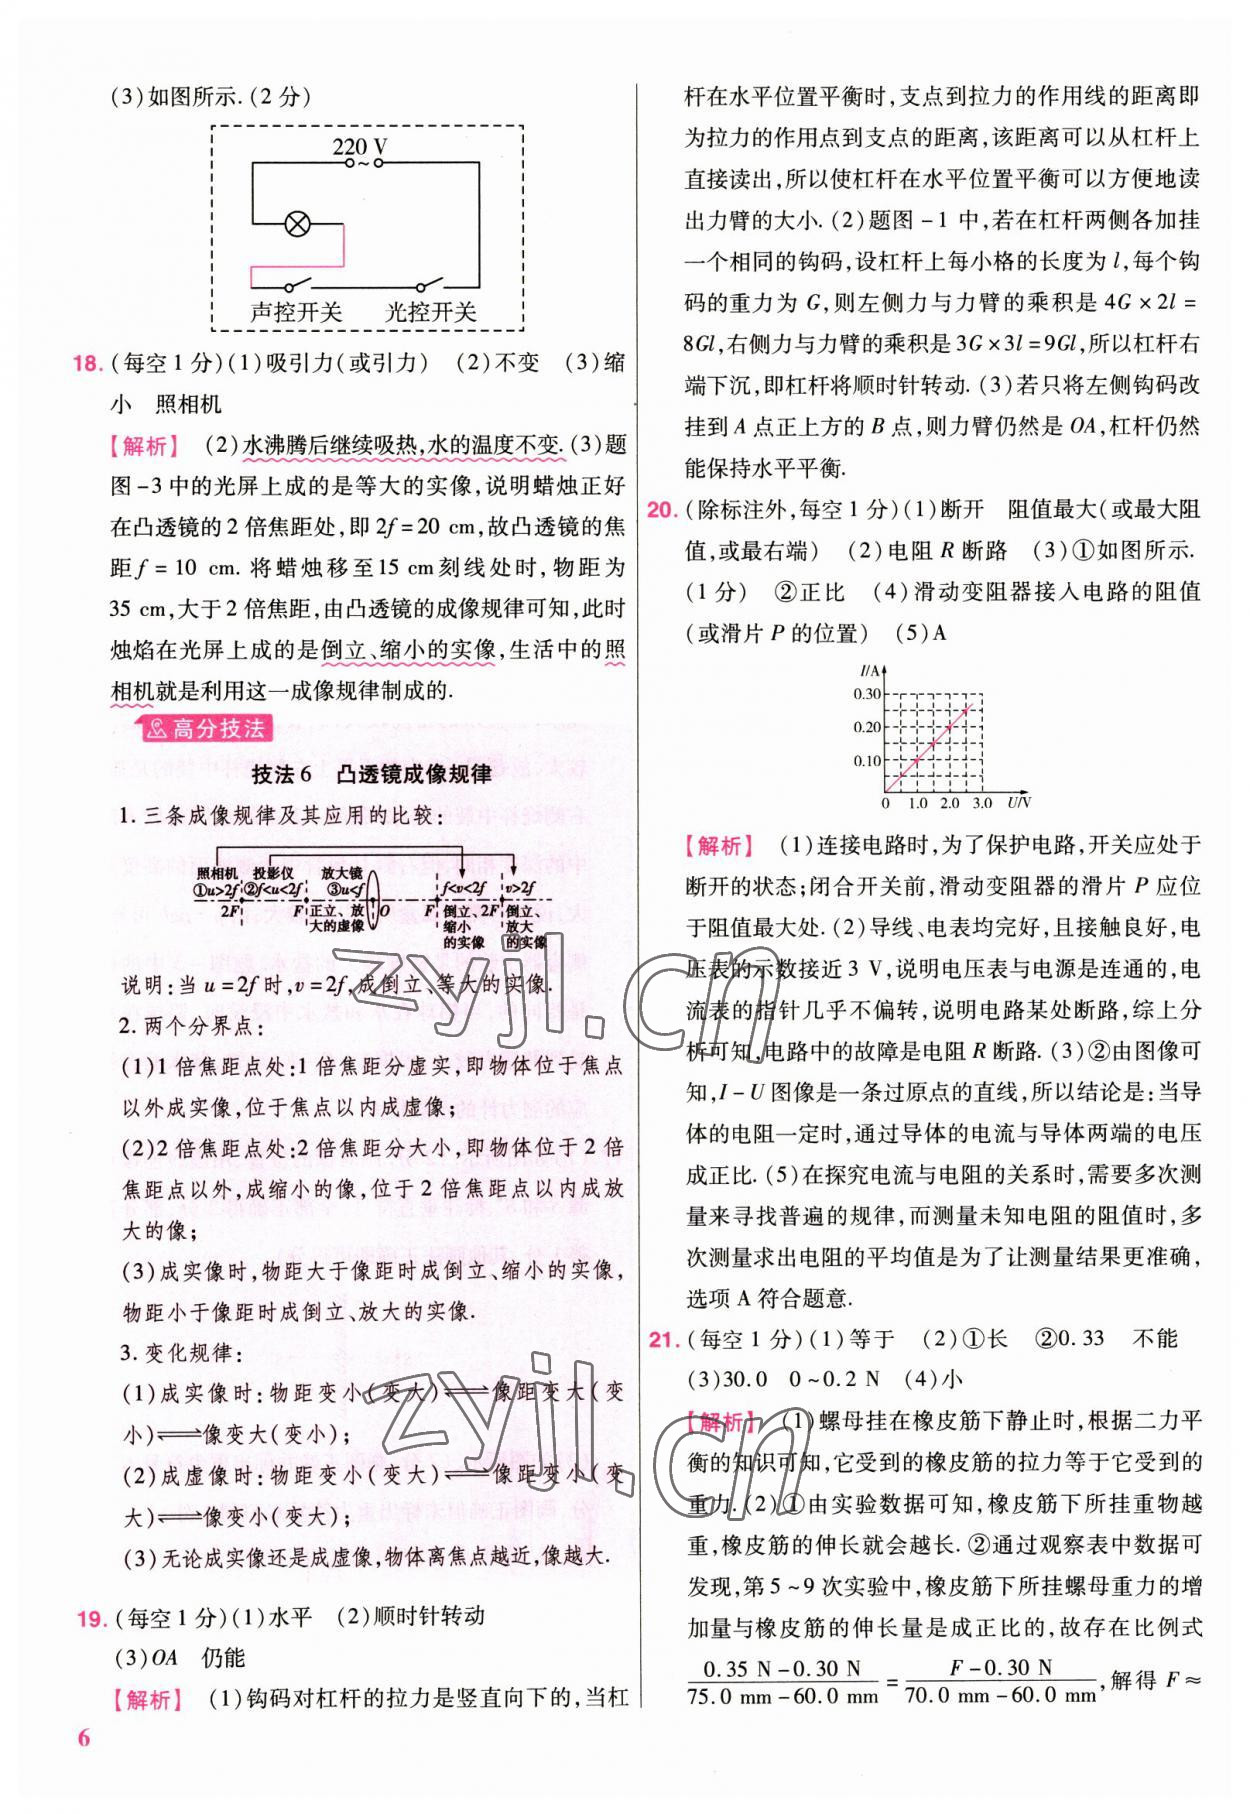 (3)如图所示.(2分)
220 V
~
声控开关 光控开关
18. (每空1分)(1)吸引力(或引力) (2)不变 (3)缩
小 照相机
【解析】 (2)水沸腾后继续吸热,水的温度不变.(3)题
图-3中的光屏上成的是等大的实像,说明蜡烛正好
在凸透镜的2倍焦距处,即2f=20 cm,故凸透镜的焦
距f=10 cm. 将蜡烛移至15 cm刻线处时,物距为
35 cm,大于2倍焦距,由凸透镜的成像规律可知,此时
烛焰在光屏上成的是倒立、缩小的实像,生活中的照
相机就是利用这一成像规律制成的.
高分技法
技法6 凸透镜成像规律
1.三条成像规律及其应用的比较:
照相机 投影仪 放大镜
①u>2f ②f<u<2f ③u<f f<v<2f v>2f
2F F 正立、放 O F 倒立、 2F 倒立、
大的虚像 缩小 放大
的实像 的实像
说明:当u=2f时,v=2f,成倒立、等大的实像.
2.两个分界点:
(1)1倍焦距点处:1倍焦距分虚实,即物体位于焦点
以外成实像,位于焦点以内成虚像;
(2)2倍焦距点处:2倍焦距分大小,即物体位于2倍
焦距点以外,成缩小的像,位于2倍焦距点以内成放
大的像;
(3)成实像时,物距大于像距时成倒立、缩小的实像,
物距小于像距时成倒立、放大的实像.
3.变化规律:
(1)成实像时:物距变小(变大)⇌像距变大(变
小)⇌像变大(变小);
(2)成虚像时:物距变小(变大)⇌像距变小(变
大)⇌像变小(变大);
(3)无论成实像还是成虚像,物体离焦点越近,像越大.
19. (每空1分)(1)水平 (2)顺时针转动
(3)OA 仍能
【解析】 (1)钩码对杠杆的拉力是竖直向下的,当杠
6
杆在水平位置平衡时,支点到拉力的作用线的距离即
为拉力的作用点到支点的距离,该距离可以从杠杆上
直接读出,所以使杠杆在水平位置平衡可以方便地读
出力臂的大小.(2)题图-1中,若在杠杆两侧各加挂
一个相同的钩码,设杠杆上每小格的长度为l,每个钩
码的重力为G,则左侧力与力臂的乘积是4G×2l=
8Gl,右侧力与力臂的乘积是3G×3l=9Gl,所以杠杆右
端下沉,即杠杆将顺时针转动.(3)若只将左侧钩码改
挂到A点正上方的B点,则力臂仍然是OA,杠杆仍然
能保持水平平衡.
20. (除标注外,每空1分)(1)断开 阻值最大(或最大阻
值,或最右端) (2)电阻R断路 (3)①如图所示.
(1分) ②正比 (4)滑动变阻器接入电路的阻值
(或滑片P的位置) (5)A
I/A
0.30
0.20
0.10
0 1.0 2.0 3.0 U/V
【解析】 (1)连接电路时,为了保护电路,开关应处于
断开的状态;闭合开关前,滑动变阻器的滑片P应位
于阻值最大处.(2)导线、电表均完好,且接触良好,电
压表的示数接近3 V,说明电压表与电源是连通的,电
流表的指针几乎不偏转,说明电路某处断路,综上分
析可知,电路中的故障是电阻R断路.(3)②由图像可
知,I-U图像是一条过原点的直线,所以结论是:当导
体的电阻一定时,通过导体的电流与导体两端的电压
成正比.(5)在探究电流与电阻的关系时,需要多次测
量来寻找普遍的规律,而测量未知电阻的阻值时,多
次测量求出电阻的平均值是为了让测量结果更准确,
选项A符合题意.
21. (每空1分)(1)等于 (2)①长 ②0.33 不能
(3)30.0 0~0.2 N (4)小
【解析】 (1)螺母挂在橡皮筋下静止时,根据二力平
衡的知识可知,它受到的橡皮筋的拉力等于它受到的
重力.(2)①由实验数据可知,橡皮筋下所挂重物越
重,橡皮筋的伸长就会越长.②通过观察表中数据可
发现,第5~9次实验中,橡皮筋下所挂螺母重力的增
加量与橡皮筋的伸长量是成正比的,故存在比例式
0.35 N-0.30 N / 75.0 mm-60.0 mm = F-0.30 N / 70.0 mm-60.0 mm,解得F≈
zyjl.cn
zyjl.cn